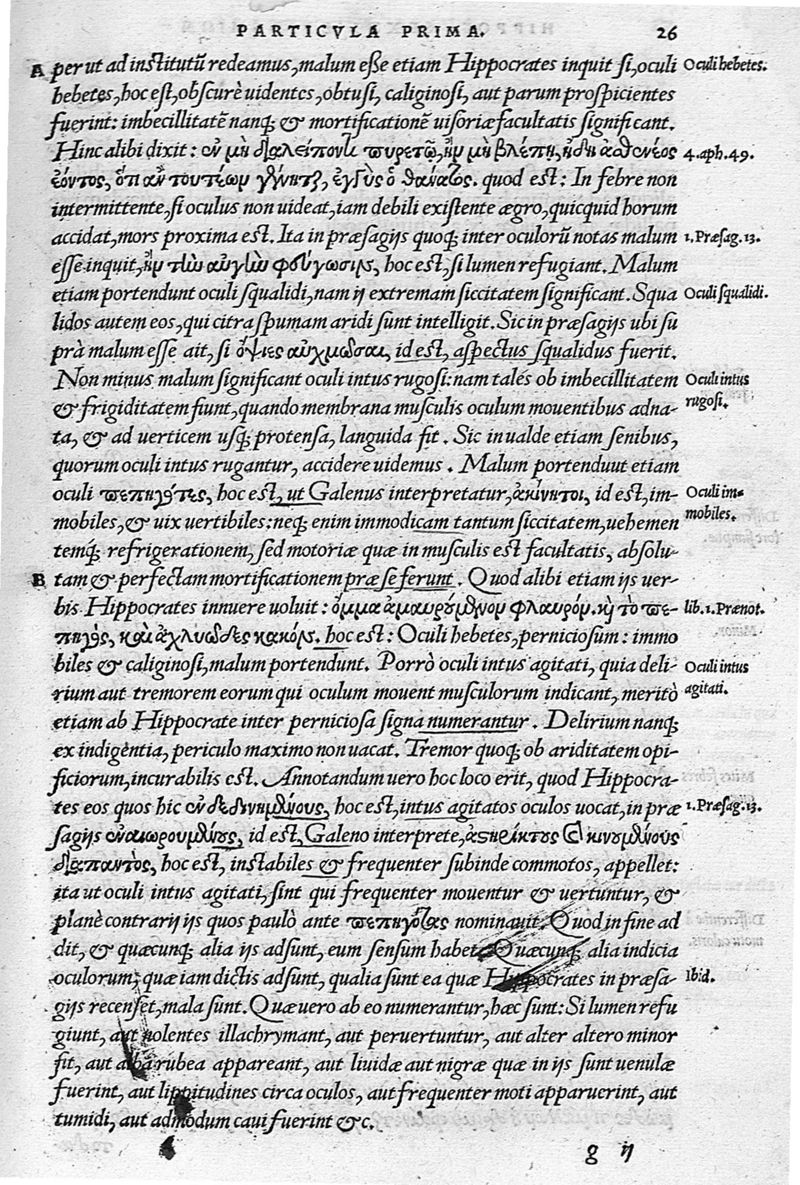 PARTICVLA PRIMA. 26
A per ut ad institutũ redeamus, malum esse etiam Hippocrates inquit si, oculi Oculi hebetes.
hebetes, hoc est, obscurè uidentes, obtusi, caliginosi, aut parum prospicientes
fuerint: imbecillitatẽ nanq; & mortificationẽ uisoriæ facultatis significant.
Hinc alibi dixit: ἐν μὴ διαλείποντι πυρετῷ, ἢν μὴ βλέπῃ, ἤδη ἀσθενέος 4. aph. 49.
ἐόντος, ὅτι ἂν τουτέων γίνηται, ἐγγὺς ὁ θάνατος. quod est: In febre non
intermittente, si oculus non uideat, iam debili existente ægro, quicquid horum
accidat, mors proxima est. Ita in præsagijs quoq; inter oculorũ notas malum 1. Præsag. 13.
esse inquit, ἢν τὴν αὐγὴν φεύγωσιν, hoc est, si lumen refugiant. Malum
etiam portendunt oculi squalidi, nam ij extremam siccitatem significant. Squa Oculi squalidi.
lidos autem eos, qui citra spumam aridi sunt intelligit. Sic in præsagijs ubi su
prà malum esse ait, si ὄψιες αὐχμῶσαι, id est, aspectus squalidus fuerit.
Non minus malum significant oculi intus rugosi: nam tales ob imbecillitatem Oculi intus
& frigiditatem fiunt, quando membrana musculis oculum mouentibus adna- rugosi.
ta, & ad uerticem usq; protensa, languida fit. Sic in ualde etiam senibus,
quorum oculi intus rugantur, accidere uidemus. Malum portenduut etiam
oculi πεπηγότες, hoc est, ut Galenus interpretatur, ἀκίνητοι, id est, im- Oculi im-
mobiles, & uix uertibiles: neq; enim immodicam tantum siccitatem, uehemen mobiles.
temq́; refrigerationem, sed motoriæ quæ in musculis est facultatis, absolu-
B tam & perfectam mortificationem præ se ferunt. Quod alibi etiam ijs uer-
bis Hippocrates innuere uoluit: ὄμμα ἀμαυρούμενον φλαυρόν. καὶ τὸ πε- lib. 1. Prænot.
πηγὸς, καὶ ἀχλυῶδες κακόν. hoc est: Oculi hebetes, perniciosum: immo
biles & caliginosi, malum portendunt. Porrò oculi intus agitati, quia deli- Oculi intus
rium aut tremorem eorum qui oculum mouent musculorum indicant, meritò agitati.
etiam ab Hippocrate inter perniciosa signa numerantur. Delirium nanq;
ex indigentia, periculo maximo non uacat. Tremor quoq; ob ariditatem opi-
ficiorum, incurabilis est. Annotandum uero hoc loco erit, quod Hippocra-
tes eos quos hic ἐνδεδινημένους, hoc est, intus agitatos oculos uocat, in præ 1. Præsag. 13.
sagijs ἐναιωρουμένους, id est, Galeno interprete, ἀστηρίκτους καὶ κινουμένους
διαπαντὸς, hoc est, instabiles & frequenter subinde commotos, appellet:
ita ut oculi intus agitati, sint qui frequenter mouentur & uertuntur, &
planè contrarij ijs quos paulò ante πεπηγότας nominauit. Quod in fine ad
dit, & quæcunq; alia ijs adsunt, eum sensum habet. Quæcunq; alia indicia
oculorum, quæ iam dictis adsunt, qualia sunt ea quæ Hippocrates in præsa- Ibid.
gijs recenset, mala sunt. Quæ uero ab eo numerantur, hæc sunt: Si lumen refu
giunt, aut nolentes illachrymant, aut peruertuntur, aut alter altero minor
fit, aut alba rubea appareant, aut liuidæ aut nigræ quæ in ijs sunt uenulæ
fuerint, aut lippitudines circa oculos, aut frequenter moti apparuerint, aut
tumidi, aut admodum caui fuerint &c.
g ij